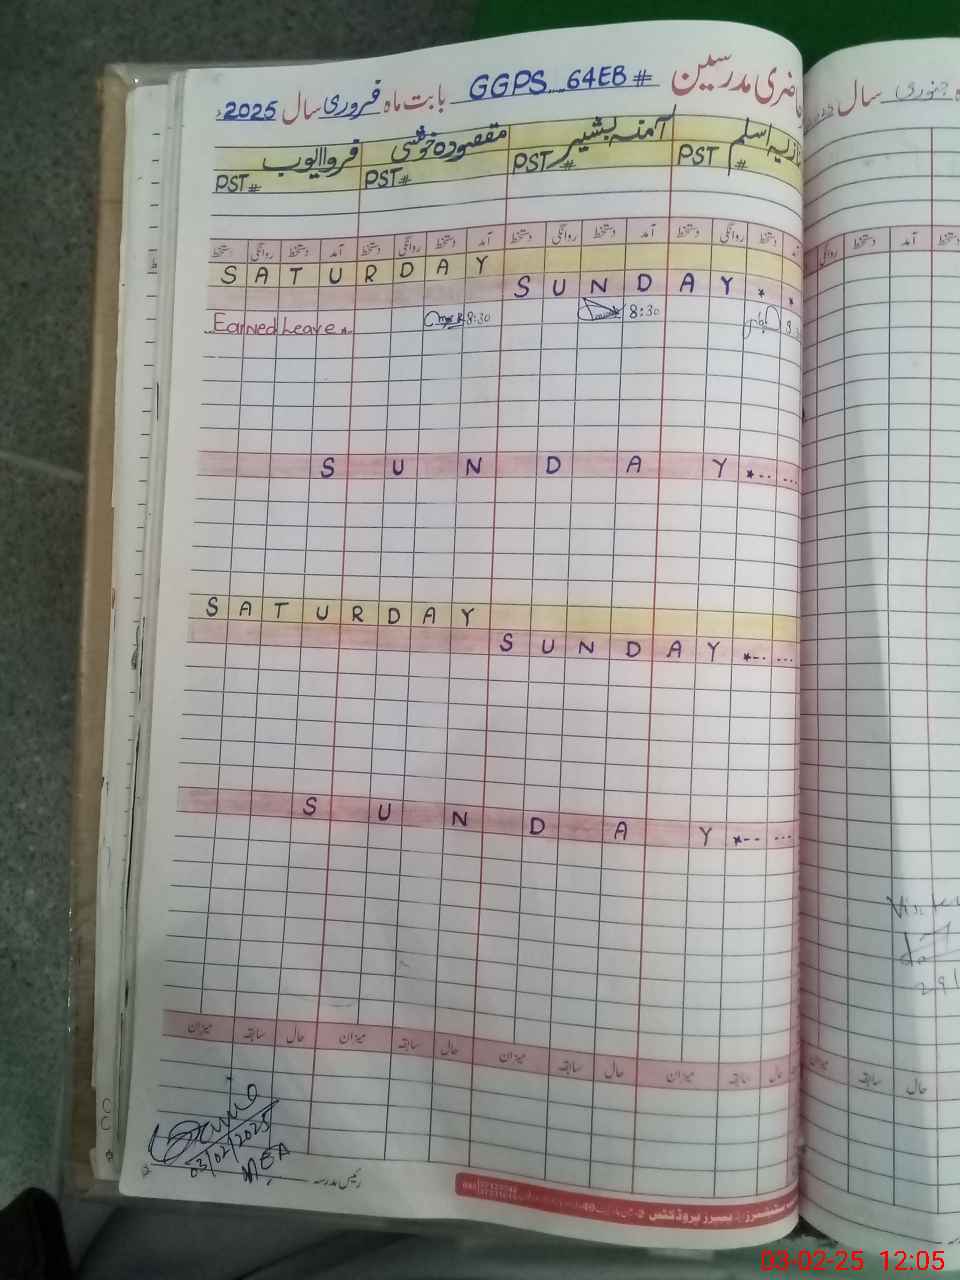 حاضری مدرسین GGPS 64EB # بابت ماہ فروری سال 2025ء
نازیہ اسلم آمنہ بشیر مقصودہ خوشی فروا ایوب
PST # PST # PST # PST #
آمد دستخط روانگی دستخط آمد دستخط روانگی دستخط آمد دستخط روانگی دستخط آمد دستخط روانگی دستخط
SATURDAY
SUNDAY
Earned Leave 8:30 8:30
SUNDAY
SATURDAY
SUNDAY
SUNDAY
حال سابقہ میزان حال سابقہ میزان حال سابقہ میزان حال سابقہ میزان
03/02/2025
رئیس مدرسہ
جنوری سال
روانگی دستخط آمد دستخط
میزان سابقہ حال
03-02-25 12:05